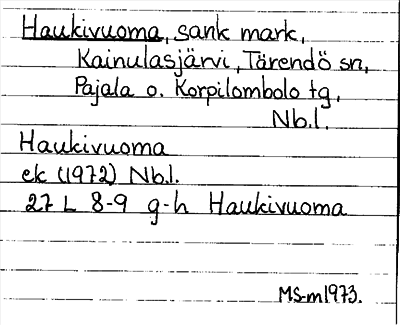 Haukivuoma, sank mark,
Kainulasjärvi, Tärendö sn,
Pajala o. Korpilombolo tg,
Nb.l.
Haukivuoma
ek (1972) Nb.l.
27 L 8-9 g-h Haukivuoma
MS-m1973.